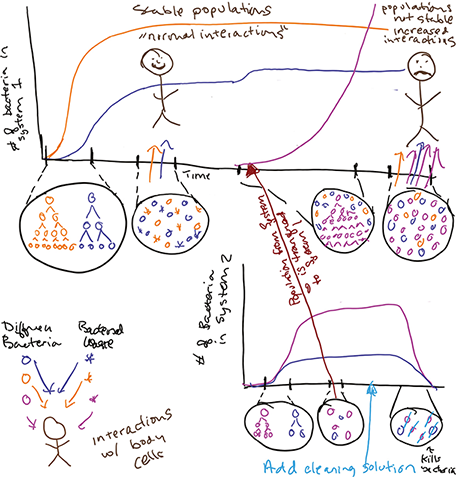 Stable populations
"normal interactions"
populations
not stable
increased
interactions
# of bacteria in
system 1
Time
Population from 2nd
System
is transferred
to system 1
# of Bacteria
in System 2
Different
Bacteria
Bacterial
Waste
interactions
w/ body
cells
Add cleaning solution
Kills
bacteria